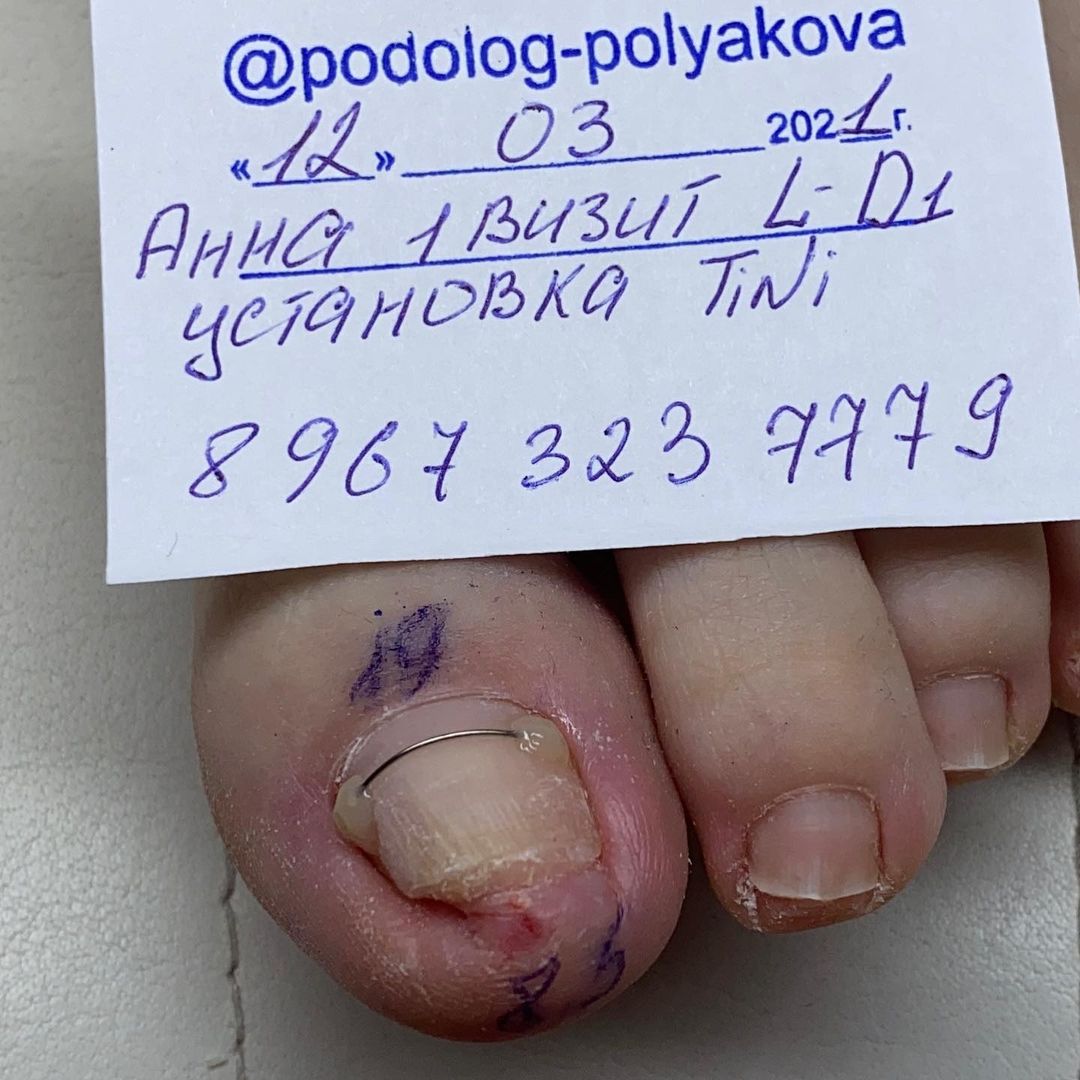 @podolog-polyakova
«12» 03 2021г.
Анна 1 визит L-D1
установка TiNi
8 967 323 7779